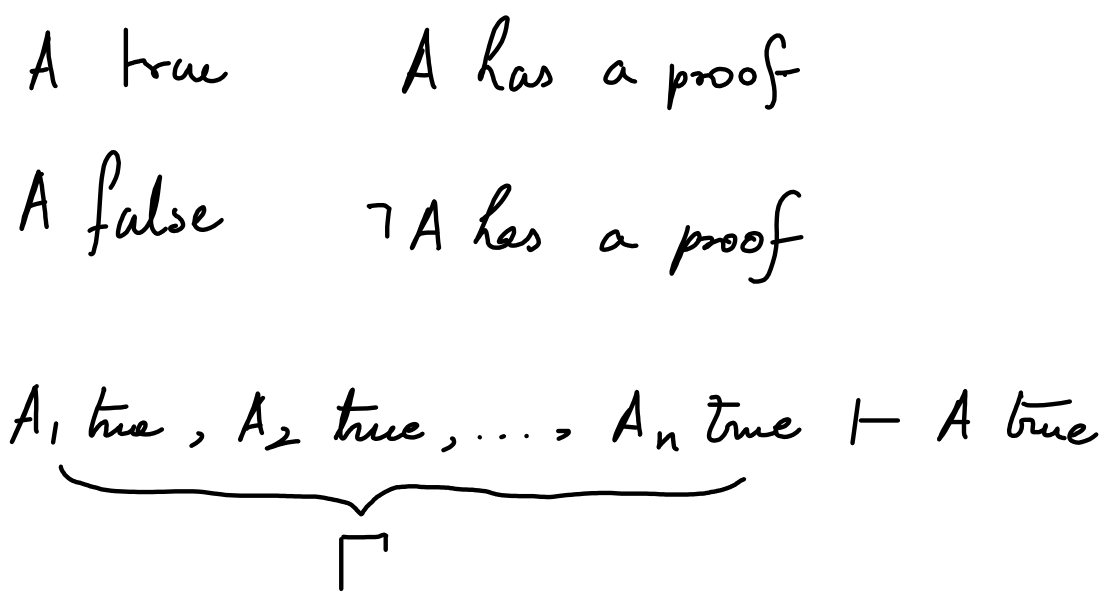 A true A has a proof
A false ¬A has a proof
A₁ true, A₂ true, ..., Aₙ true ⊢ A true
Γ